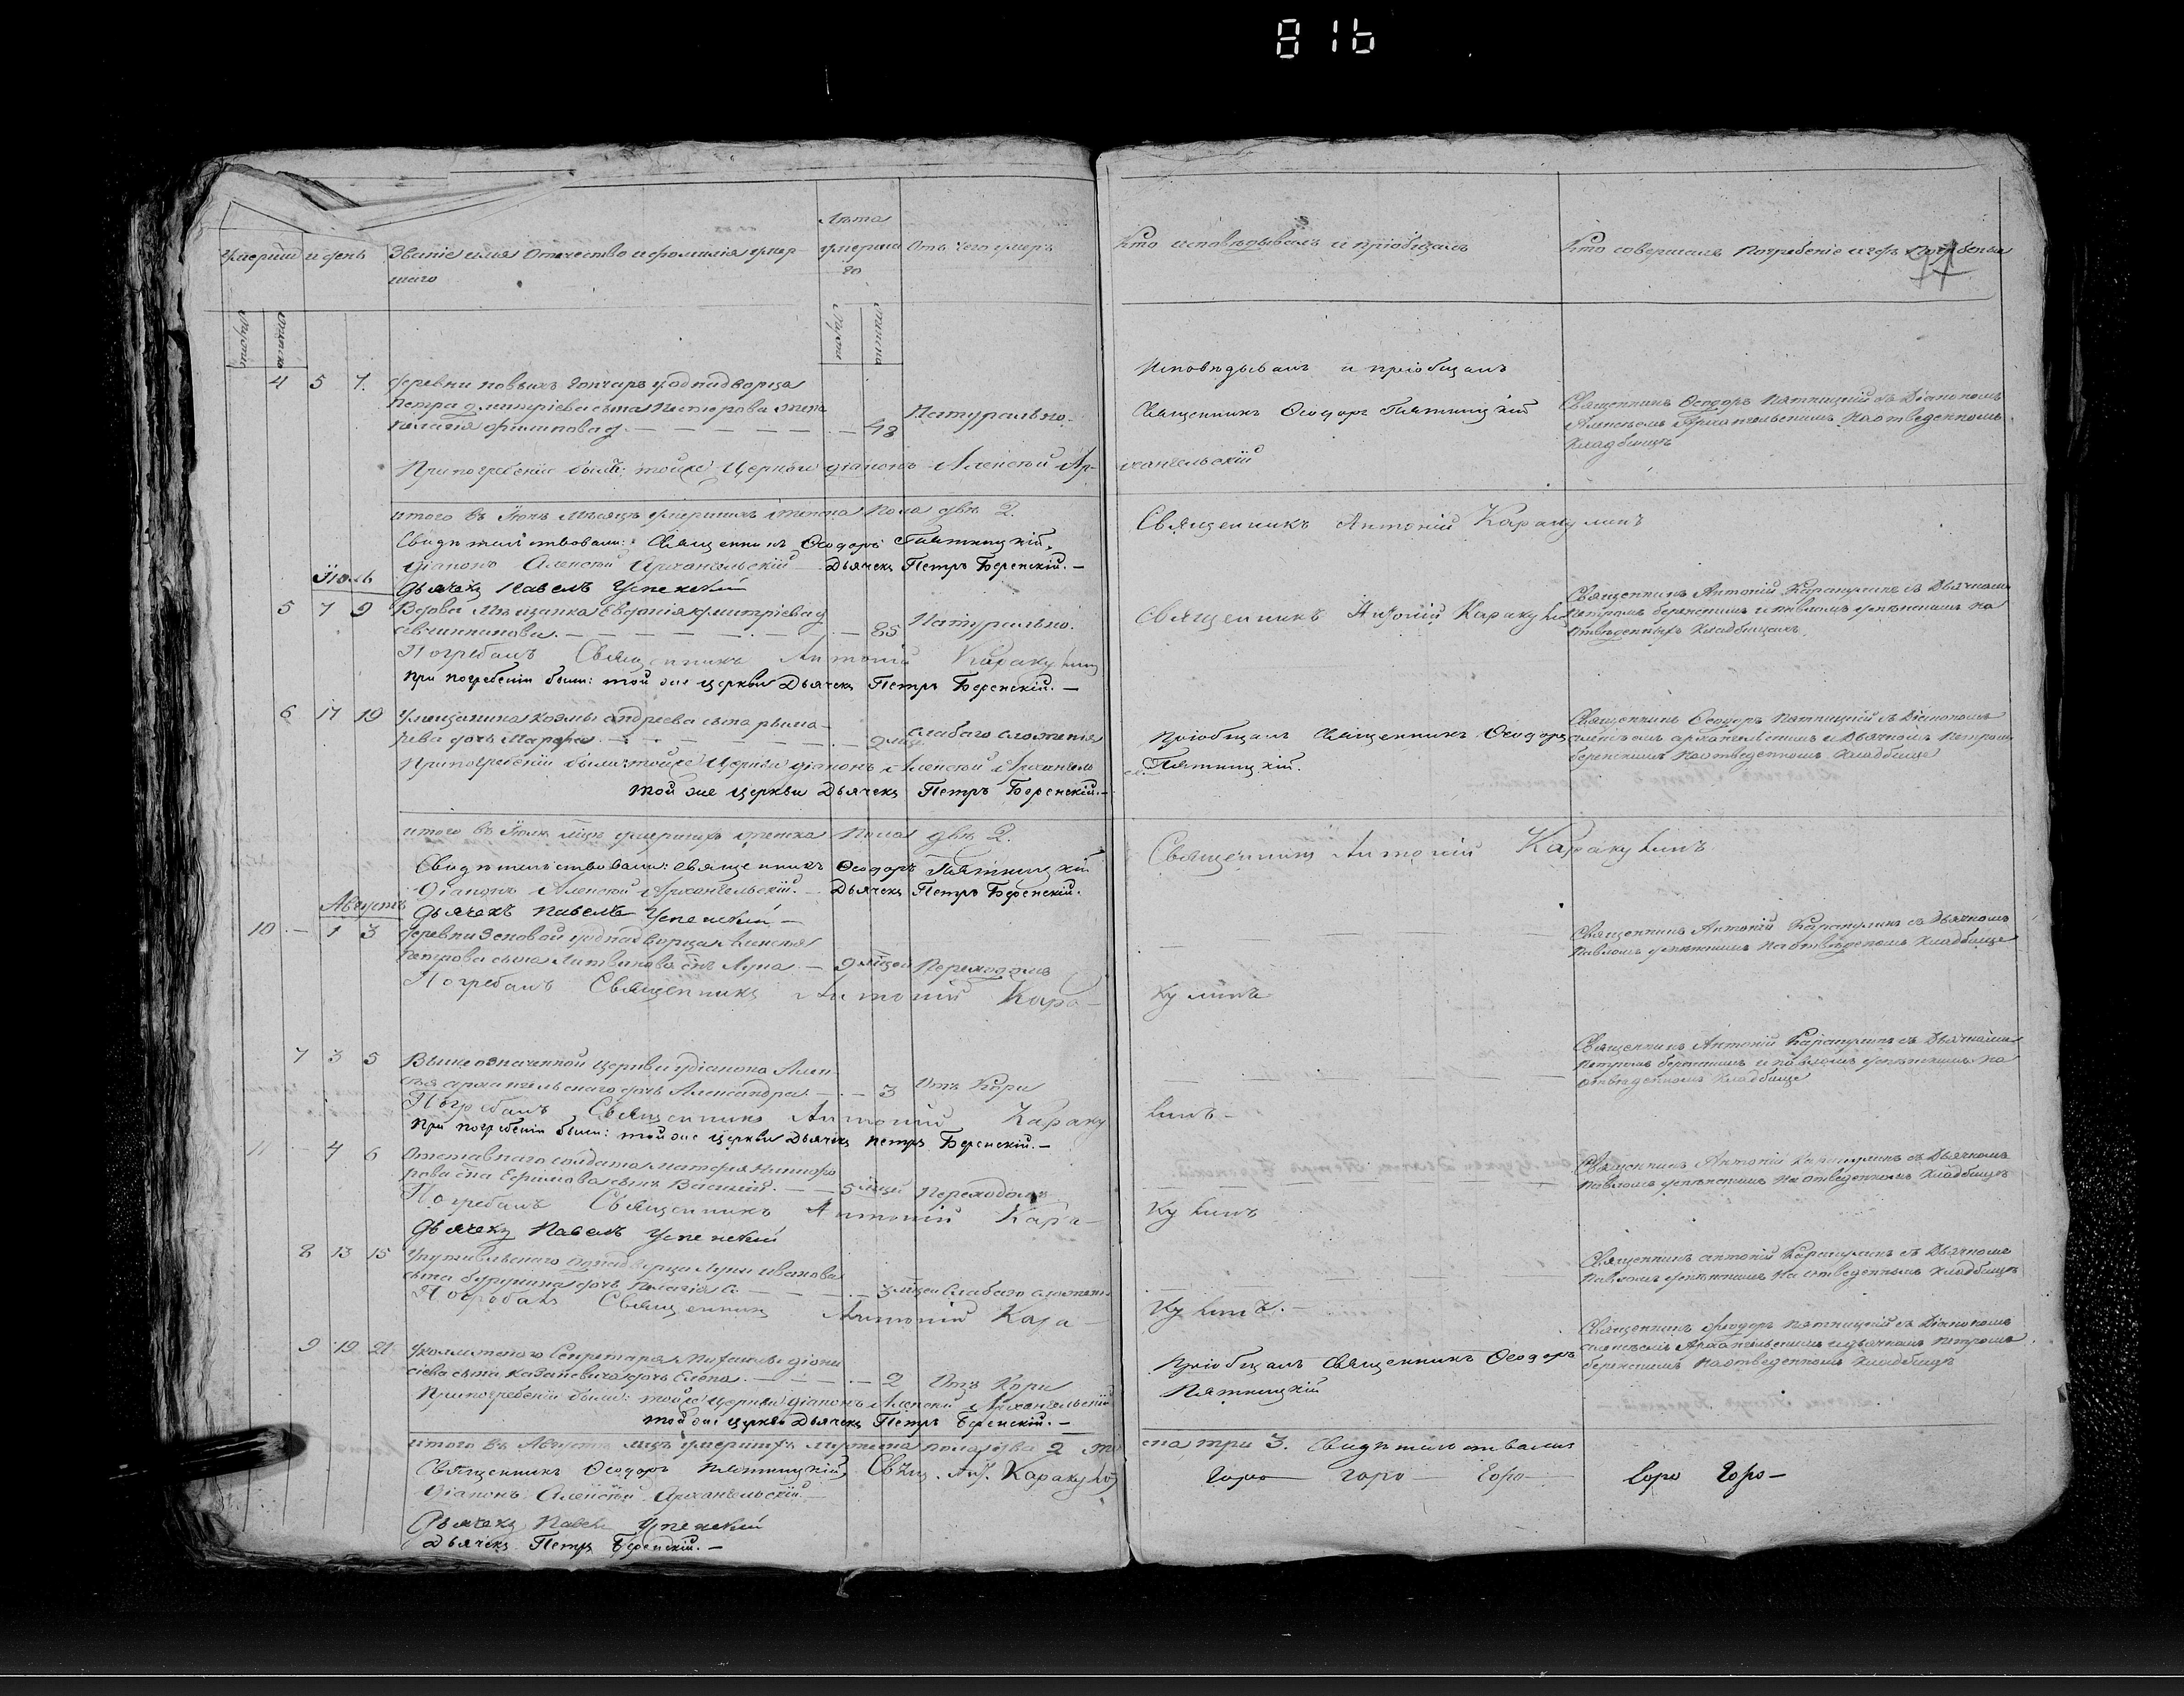 816
Лѣта
умерша
го
Умершій и день
Званіе имя Отечество и фомилія умер
шаго
Отъ чего умеръ
Кто исповѣдывалъ и пріобщалъ
Кто совершалъ Погребеніе и гдѣ погребены
4 5 7. деревни новыхъ Гончаръ у однадворца
Петра дмитріева сына жена
пелагія филипова д. — — 48
Натурально.
Исповѣдывалъ и пріобщалъ
Священникъ Ѳеодоръ Пятницкій
Священникъ Ѳеодоръ Пятницкій съ Діакономъ
Алексѣемъ Архангельскимъ На отведенномъ
Кладбищѣ
При погребеніи были: тойже Церкви діаконъ Алексѣй Ар-
хангельскій
итого въ Іюнѣ Мѣсяцѣ умершихъ женска Пола двѣ 2.
Священникъ Антоній Каракулинъ
Свидѣтельствовали: Священникъ Ѳеодоръ Пятницкій.
діаконъ Алексѣй Архангельскій Дьячекъ Петръ Беренскій. —
Дьячекъ Павелъ Успенскій
Іюль
5 7 9 Вдова Мѣщанка Евдокія дмитріева д
овчинникова. — — 85
Натурально.
Священникъ Антоній Каракулин
Священникъ Антоній Каракулинъ съ Дьячкомъ
Петромъ беренскимъ и павломъ успенскимъ на
отведенныхъ Кладбищахъ.
Погребалъ Священникъ Антоній Каракулин
При погребеніи были: той же церкви Дьячекъ Петръ Беренскій. —
6 17 19 Умещанина Козмы андреева сына рыма-
рева дочь Марфа. — — 2 мцъ.
Слабаго сложенія
пріобщалъ Священникъ Ѳеодоръ
Пятницкій.
Священникъ Ѳеодоръ Пятницкій съ Діакономъ
алексѣемъ архангельскимъ и Дьячкомъ Петромъ
беренскимъ На отведенномъ Кладбище
При погребеніи были: тойже Церкви діаконъ Алексѣй Архангель
ск.
той же церкви Дьячекъ Петръ Беренскій. —
итого въ Іюлѣ мцѣ умершихъ женска Пола двѣ 2.
Священникъ Антоній Каракулинъ
Свидѣтельствовали: Священникъ Ѳеодоръ Пятницкій
Діаконъ Алексѣй Архангельскій. Дьячекъ Петръ Беренскій.
Дьячекъ Павелъ Успенскій —
Августъ
10 — 1 3 деревни Зеновой у однадворца Алексѣя
петрова сына Литвинова снъ Лука. — 9 мцей
Переходомъ
Священникъ Антоній Каракулинъ съ Дьячкомъ
Павломъ успенскимъ На отведеномъ Кладбище
Погребалъ Священникъ Антоній Кара-
кулинъ
7 3 5 Вышеозначенной церкви у діакона Алек-
сѣя архангельскаго дочь Александра. — 3
Отъ Кори
Священникъ Антоній Каракулинъ съ Дьячкомъ
Петромъ беренскимъ и павломъ успенскимъ на
отведенномъ Кладбище
Погребалъ Священникъ Антоній Караку
линъ —
При погребеніи были: той же церкви Дьячекъ петръ Беренскій. —
11 — 4 6 Отставнаго солдата Матфея Никифо
рова сна Ефимова сынъ Василій. — 5 мцей
Переходомъ
Священникъ Антоній Каракулинъ съ Дьячкомъ
Павломъ успенскимъ На отведенномъ Кладбище
Погребалъ Священникъ Антоній Кара-
кулинъ
Дьячекъ Павелъ Успенскій
8 13 15 Упутивльскаго однадворца Луки иванова
сына дочь Пелагія. — 3 мцей
Слабаго сложенія
Священникъ антоній Каракулинъ съ Дьячкомъ
Павломъ успенскимъ На отведенномъ Кладбищѣ
Погребалъ Священникъ Антоній Кара-
кулинъ. —
9 19 21 Уколлежскаго Секретаря діони
сіева сына Казаневича дочь Елена. — 2
Отъ Кори
Пріобщалъ Священникъ Ѳеодоръ
Пятницкій
Священникъ Ѳеодоръ Пятницкій съ Діакономъ
алексѣемъ Архангельскимъ и дьячкомъ Петромъ
беренскимъ На отведенномъ Кладбищѣ
При погребеніи были: тойже церкви діаконъ Алексѣй Архангельскій
той же церкви Дьячекъ Петръ Беренскій. —
итого въ Августѣ мцѣ умершихъ мужеска пола два 2 же
ска три 3. Свидѣтельствовали
Священникъ Ѳеодоръ Пятницкій, Свящ. Ант. Каракулин
Діаконъ Алексѣй Архангельскій. —
Дьячекъ Павелъ Успенскій
Дьячекъ Петръ Беренскій. —